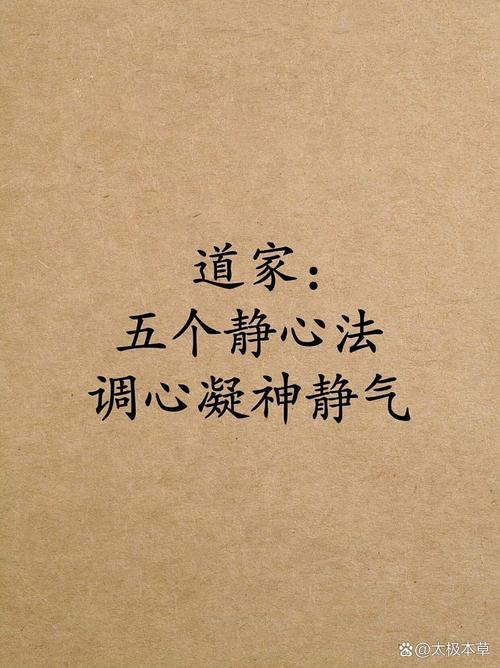 道家：
五个静心法
调心凝神静气
@太极本草